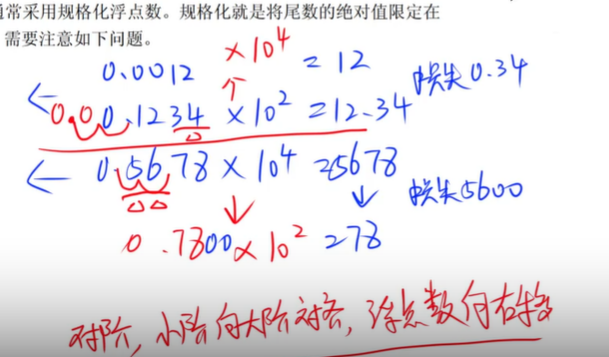 通常采用规格化浮点数。规格化就是将尾数的绝对值限定在
需要注意如下问题。
0.0012 ×10⁴ = 12
损失0.34
← 0.0 0.1234 ×10² = 12.34
← 0.5678 × 10⁴ = 5678
损失5600
0.7800 × 10² = 78
对阶, 小阶向大阶对齐, 浮点数向右移